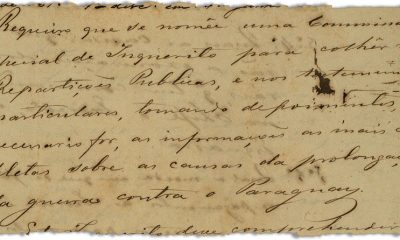 Requeiro que se nomêe uma Commiss
pecial de Inquerito para colhêr n
Repartições Publicas, e nos testemun
particulares, tomando depoimentos,
necessario for, as informações as mais c
pletas sobre as causas da prolongaç
da guerra contra o Paraguay.
deve comprehender